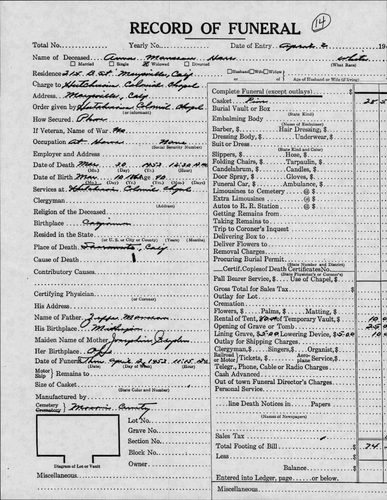 RECORD OF FUNERAL
14
Total No. Yearly No. Date of Entry April 2 19
Name of Deceased Anna
Married Single Widowed Divorced (What Race)
Residence 215 B St. Marysville, Calif Husband Wife Widow or Age of Husband or Wife (if living)
Charge to Hutchison Colonial Chapel
Address Marysville, Calif
Order given by Hutchison Colonial Chapel
(or informant)
How Secured Phone
If Veteran, Name of War No
Occupation At Home None
(Social Security Number)
Employer and Address
Date of Death Mar. 30, 1952
(Mo.) (Day) (Yr.)
Date of Birth Mar
(Mo.) (Day) (Yr.) (Mo.) (Days)
Services at Hutchison Colonial Chapel
Clergyman
(Address)
Religion of the Deceased
Birthplace
Resided in the State
(or U. S., or City or County) (Years) (Months)
Place of Death Sacramento, Calif
Cause of Death
Contributory Causes
Certifying Physician
(or Coroner)
His Address
Name of Father
His Birthplace
Maiden Name of Mother Josephine
Her Birthplace
Date of Funeral April 2, 1952 11:15 A.M.
(Mo.) (Day) (Yr.)
Motor Ship Remains to
Size of Casket
(State Color and Number)
Manufactured by
Cemetery Crematory County
Lot No.
Grave No.
Section No.
Block No.
Owner
Diagram of Lot or Vault
Complete Funeral (except outlays) $
Casket Pine
Burial Vault or Box
(State Kind)
Embalming Body
(Name of Embalmer)
Barber, $ Hair Dressing; $
Dressing Body, $ Underwear, $
Suit or Dress
(State Kind and Color)
Slippers, $ Hose, $
Folding Chairs, $ Tarpaulin, $
Candelabrum, $ Candles, $
Door Spray, $ Gloves, $
Funeral Car, $ Ambulance, $
Limousines to Cemetery @ $
Extra Limousines @ $
Autos to R. R. Station @ $
Getting Remains from
Taking Remains to
Trip to Coroner's Inquest
Delivering Box to
Deliver Flowers to
Removal Charges
Procuring Burial Permit
(State Number and District)
Certif. Copies of Death Certificates No.
(State Physician's or Coroner's)
Pall Bearer Service, $ Use of Chapel, $
Gross Total for Sales Tax $
Outlay for Lot
Cremation
Flowers, $ Palms, $ Matting, $
Rental of Tent, Temporary Vault, $ 10
Opening of Grave or Tomb 25
Lining Grave, $5.00 Lowering Device, $5.00 10
Outlay for Shipping Charges
Clergyman, $ Singers, $ Organist, $
Railroad or Motor Tickets, $ Aeroplane Service, $
Telegr., Phone, Cable or Radio Charges
Cash Advanced
Out of town Funeral Director's Charges
Personal Service
line Death Notices in Papers
(Names of Newspapers)
Sales Tax
Total Footing of Bill $ 74
Less
Balance $
Entered into Ledger, page or below.
Miscellaneous Miscellaneous